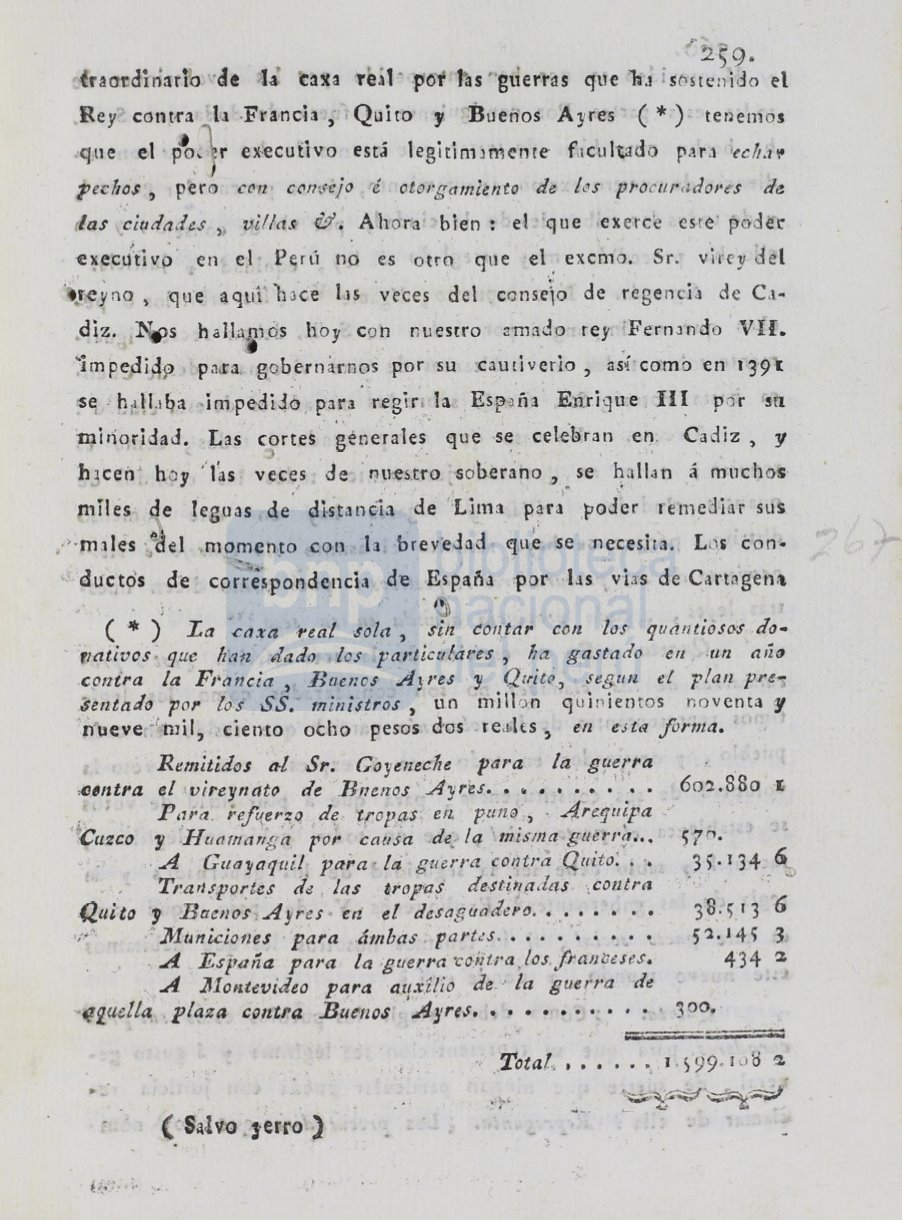 259.
traordinario de la caxa real por las guerras que ha sostenido el
Rey contra la Francia, Quito y Buenos Ayres (*) tenemos
que el poder executivo está legitimamente facultado para echar
pechos, pero con consejo é otorgamiento de los procuradores de
las ciudades, villas &. Ahora bien: el que exerce este poder
executivo en el Perú no es otro que el excmo. Sr. virey del
reyno, que aqui hace las veces del consejo de regencia de Ca-
diz. Nos hallamos hoy con nuestro amado rey Fernando VII.
impedido para gobernarnos por su cautiverio, así como en 1391
se hallaba impedido para regir la España Enrique III por su
minoridad. Las cortes generales que se celebran en Cadiz, y
hacen hoy las veces de nuestro soberano, se hallan á muchos
miles de leguas de distancia de Lima para poder remediar sus
males del momento con la brevedad que se necesita. Los con-
ductos de correspondencia de España por las vias de Cartagena
267
bnp biblioteca
nacional
(*) La caxa real sola, sin contar con los quantiosos do-
nativos que han dado los particulares, ha gastado en un año
contra la Francia, Buenos Ayres y Quito, segun el plan pre-
sentado por los SS. ministros, un millon quinientos noventa y
nueve mil, ciento ocho pesos dos reales, en esta forma.
Remitidos al Sr. Goyeneche para la guerra
contra el vireynato de Bnenos Ayres.......... 602.880 1
Para refuerzo de tropas en puno, Arequipa
Cuzco y Huamanga por causa de la misma guerra... 570.
A Guayaquil para la guerra contra Quito... 35.134 6
Transportes de las tropas destinadas contra
Quito y Buenos Ayres en el desaguadero........ 38.513 6
Municiones para ámbas partes.......... 52.145 3
A España para la guerra contra los franceses. 434 2
A Montevideo para auxilio de la guerra de
aquella plaza contra Buenos Ayres........... 300.
Total....... 1.599.108 2
(Salvo yerro)